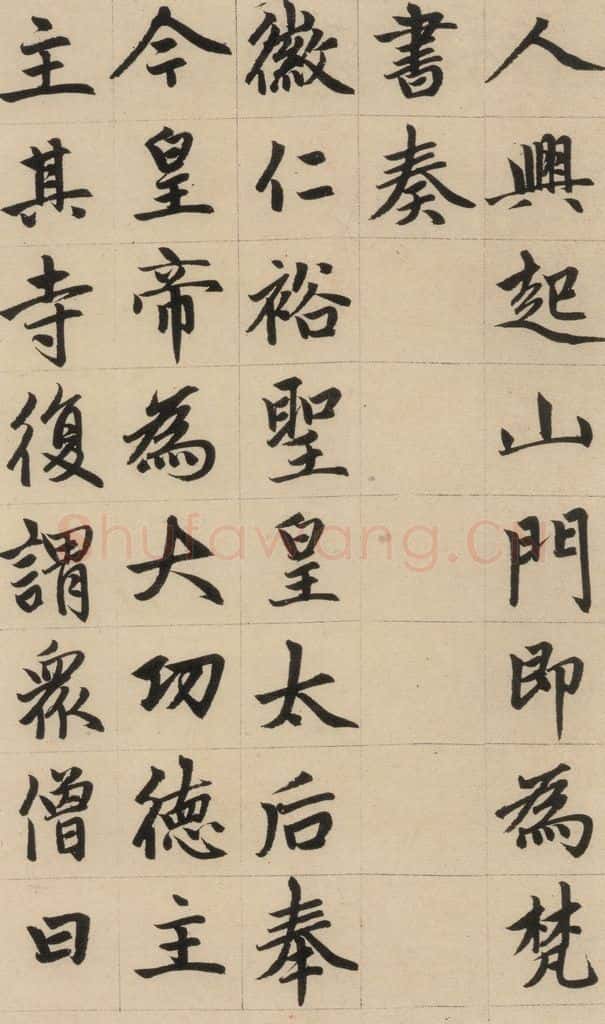 人興起山門即為梵
書奏
徽仁裕聖皇太后奉
今皇帝為大功德主
主其寺復謂眾僧曰
shufawang.cn